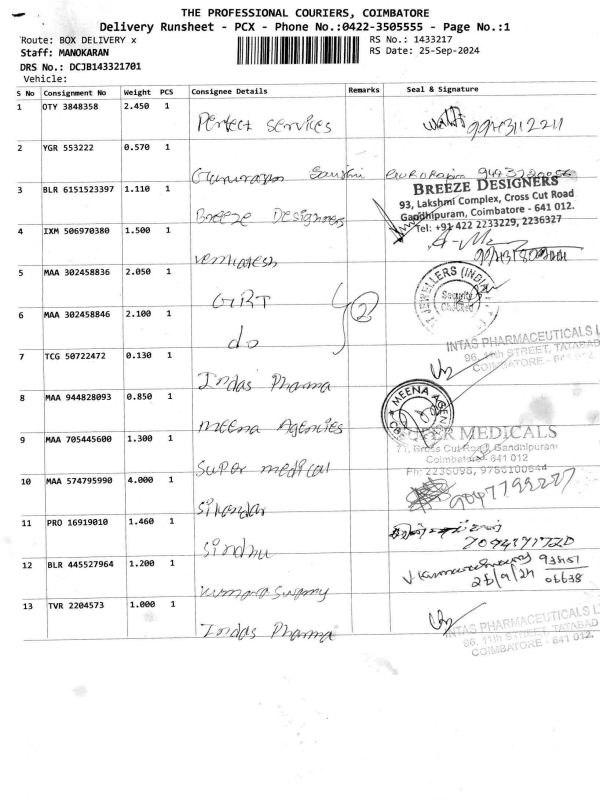 THE PROFESSIONAL COURIERS, COIMBATORE
Delivery Runsheet - PCX - Phone No.:0422-3505555 - Page No.:1
Route: BOX DELIVERY x
RS No.: 1433217
Staff: MANOKARAN
RS Date: 25-Sep-2024
DRS No.: DCJB143321701
Vehicle:
S No Consignment No Weight PCS Consignee Details Remarks Seal & Signature
1 OTY 3848358 2.450 1
Perfect services 9943112211
2 YGR 553222 0.570 1
3 BLR 6151523397 1.110 1
BREEZE DESIGNERS
93, Lakshmi Complex, Cross Cut Road
Gandhipuram, Coimbatore - 641 012.
Tel: +91 422 2233229, 2236327
Breeze Designers
4 IXM 506970380 1.500 1
venkatesh
5 MAA 302458836 2.050 1
GRT 2
JEWELLERS (INDIA)
Security Checked
6 MAA 302458846 2.100 1
do
INTAS PHARMACEUTICALS L
96, 11th STREET, TATABAD
COIMBATORE - 641 012.
7 TCG 50722472 0.130 1
Indas Pharma
8 MAA 944828093 0.850 1
MEENA AGENCIES
Meena Agencies
9 MAA 705445600 1.300 1
SUPER MEDICALS
71, Cross Cut Road, Gandhipuram
Coimbatore - 641 012
Ph: 2236098, 9786100644
Super medical
10 MAA 574795990 4.000 1
Sikandar 9047799227
11 PRO 16919010 1.460 1
Sindhu
12 BLR 445527964 1.200 1
Kumara Swamy
25/9/24
13 TVR 2204573 1.000 1
Indas Pharma
INTAS PHARMACEUTICALS L
96, 11th STREET, TATABAD
COIMBATORE - 641 012.